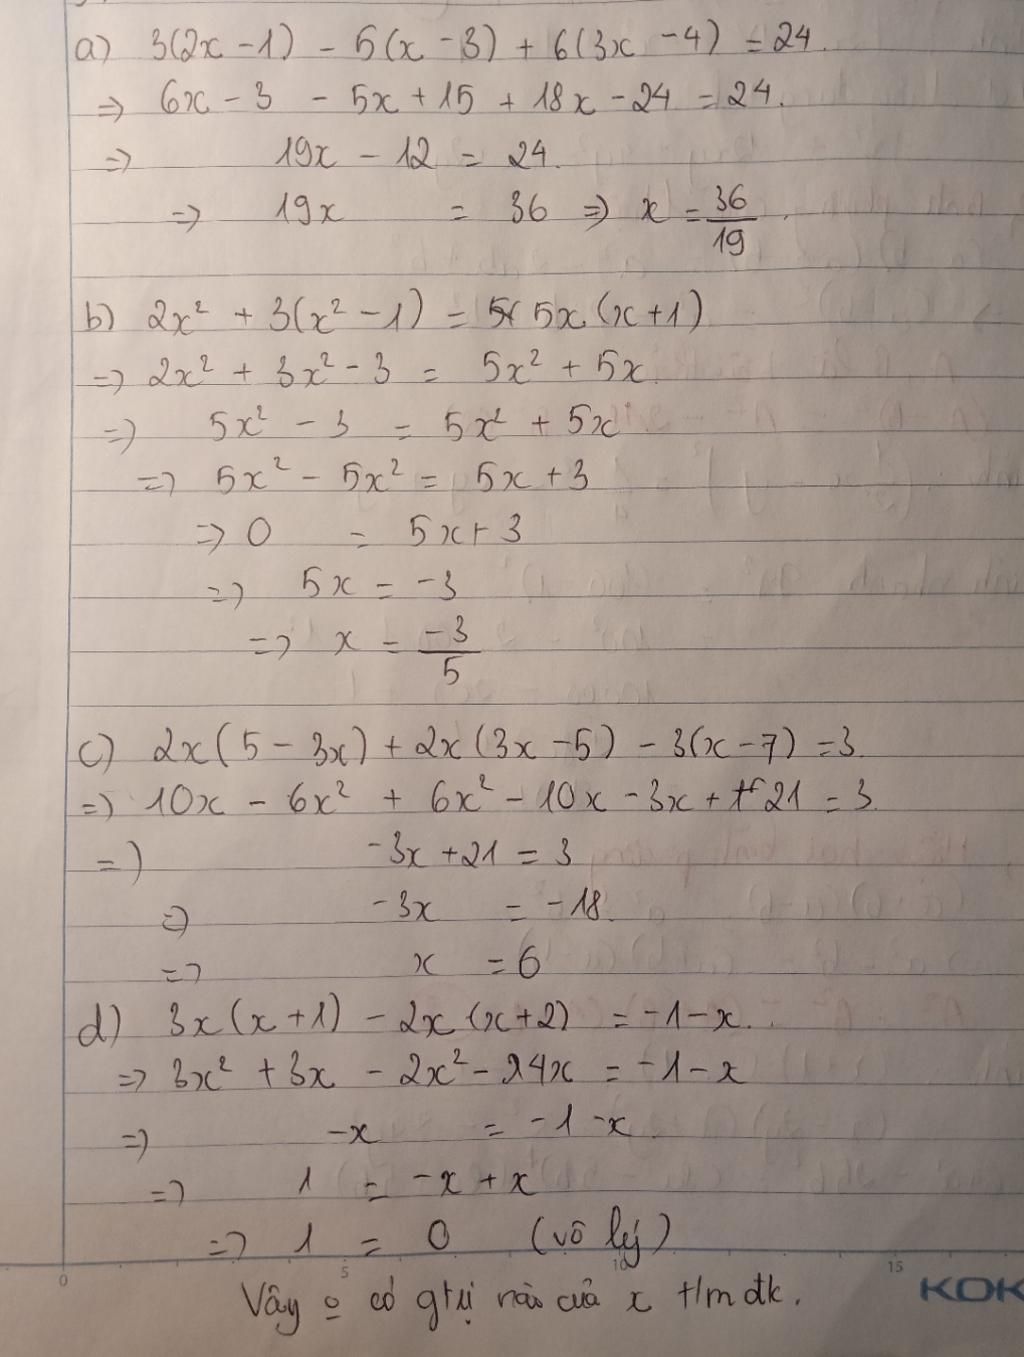 a) 3(2x - 1) - 5(x - 3) + 6(3x - 4) = 24.
=> 6x - 3 - 5x + 15 + 18x - 24 = 24.
=> 19x - 12 = 24.
=> 19x = 36 => x = 36/19.
b) 2x² + 3(x² - 1) = 5x (x + 1)
=> 2x² + 3x² - 3 = 5x² + 5x.
=> 5x² - 3 = 5x² + 5x
=> 5x² - 5x² = 5x + 3
=> 0 = 5x + 3
=> 5x = -3
=> x = -3/5
c) 2x(5 - 3x) + 2x(3x - 5) - 3(x - 7) = 3.
=> 10x - 6x² + 6x² - 10x - 3x + 21 = 3.
=> -3x + 21 = 3
=> -3x = -18.
=> x = 6
d) 3x(x + 1) - 2x(x + 2) = -1 - x.
=> 3x² + 3x - 2x² - 4x = -1 - x
=> -x = -1 - x
=> 1 = -x + x
=> 1 = 0 (vô lý)
0 5 10 15 KOK
Vậy o có gtrị nào của x t/m đk.